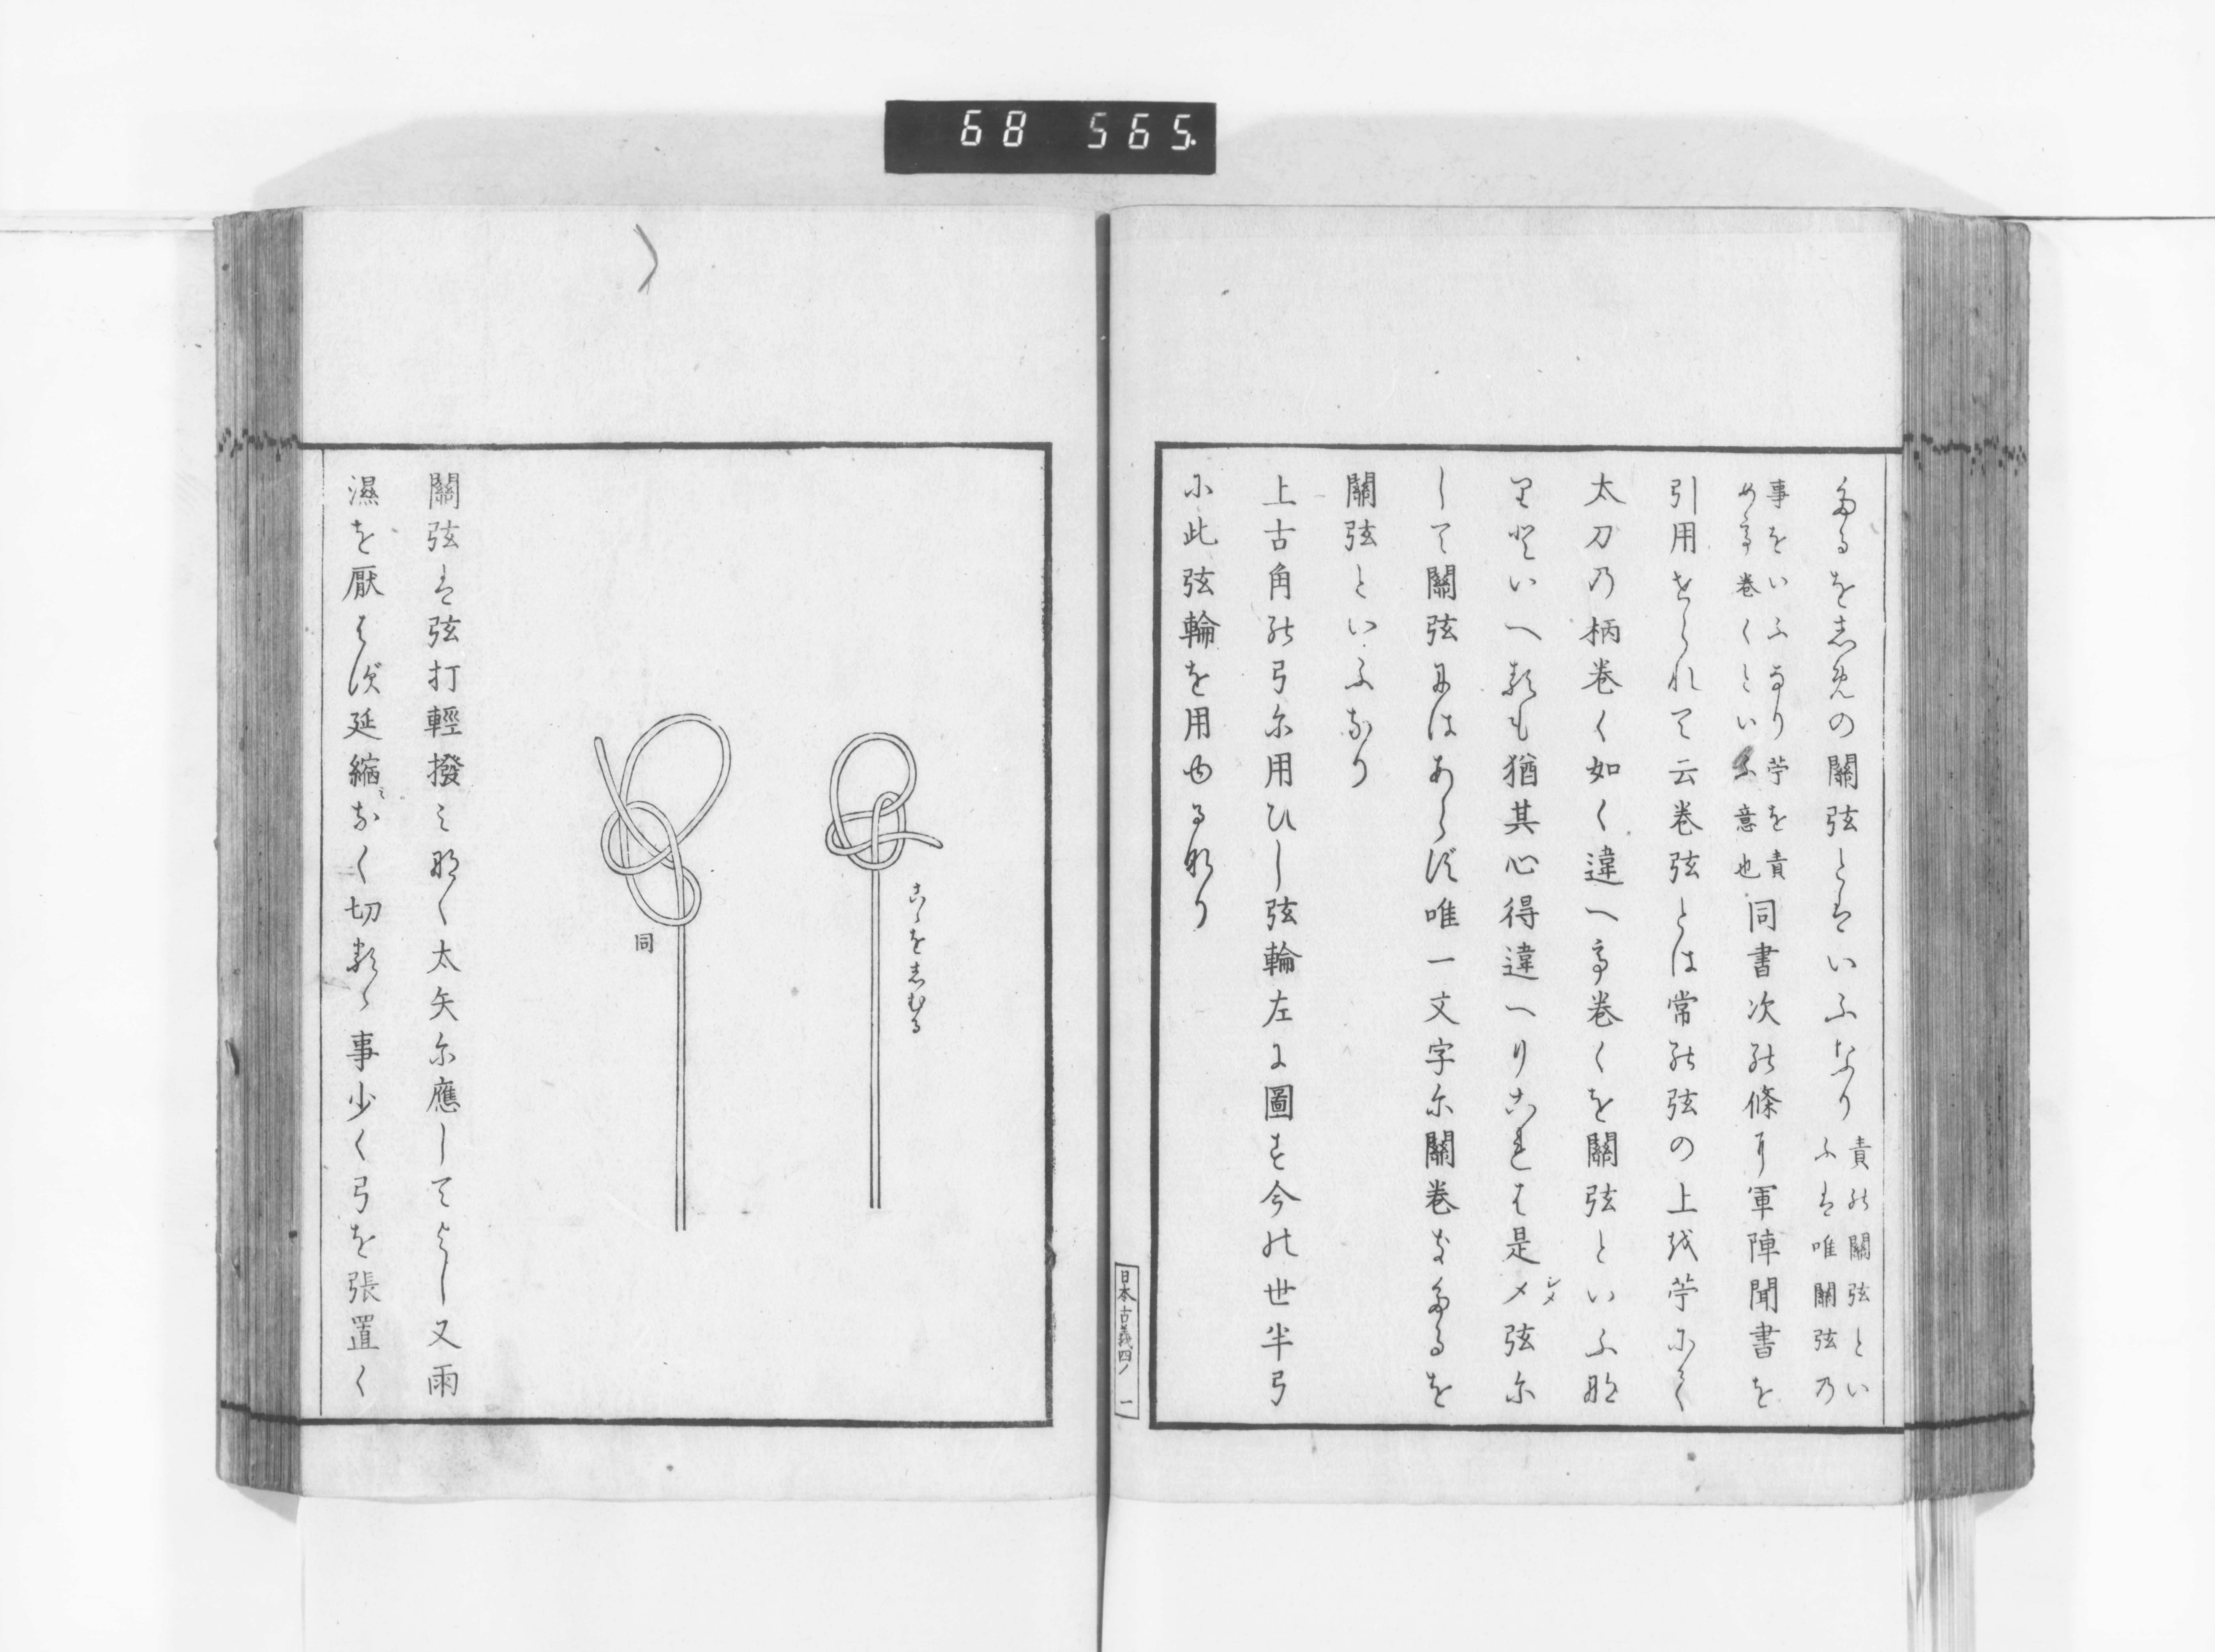 68 565.
たるをしめの關弦とはいふなり 責の關弦とい
ふは唯關弦乃
事をいふなり苧を責
めて巻くといふ意也 同書次の條り軍陣聞書を
引用せられて云巻弦とは常の弦の上を苧にて
太刀の柄巻く如く違へて巻くを關弦といふな
りといへるも猶其心得違へりこれは是メ弦に
シメ
して關弦にはあらず唯一文字に關巻きたるを
關弦といふなり
上古角の弓に用ひし弦輪左に圖す今の世半弓
に此弦輪を用ゆるなり
日本古義四ノ 一
こゝをしむる
同
關弦は弦打輕撥みなく太矢に應してよし又雨
濕を厭はず延縮みなく切るゝ事少く弓を張置く